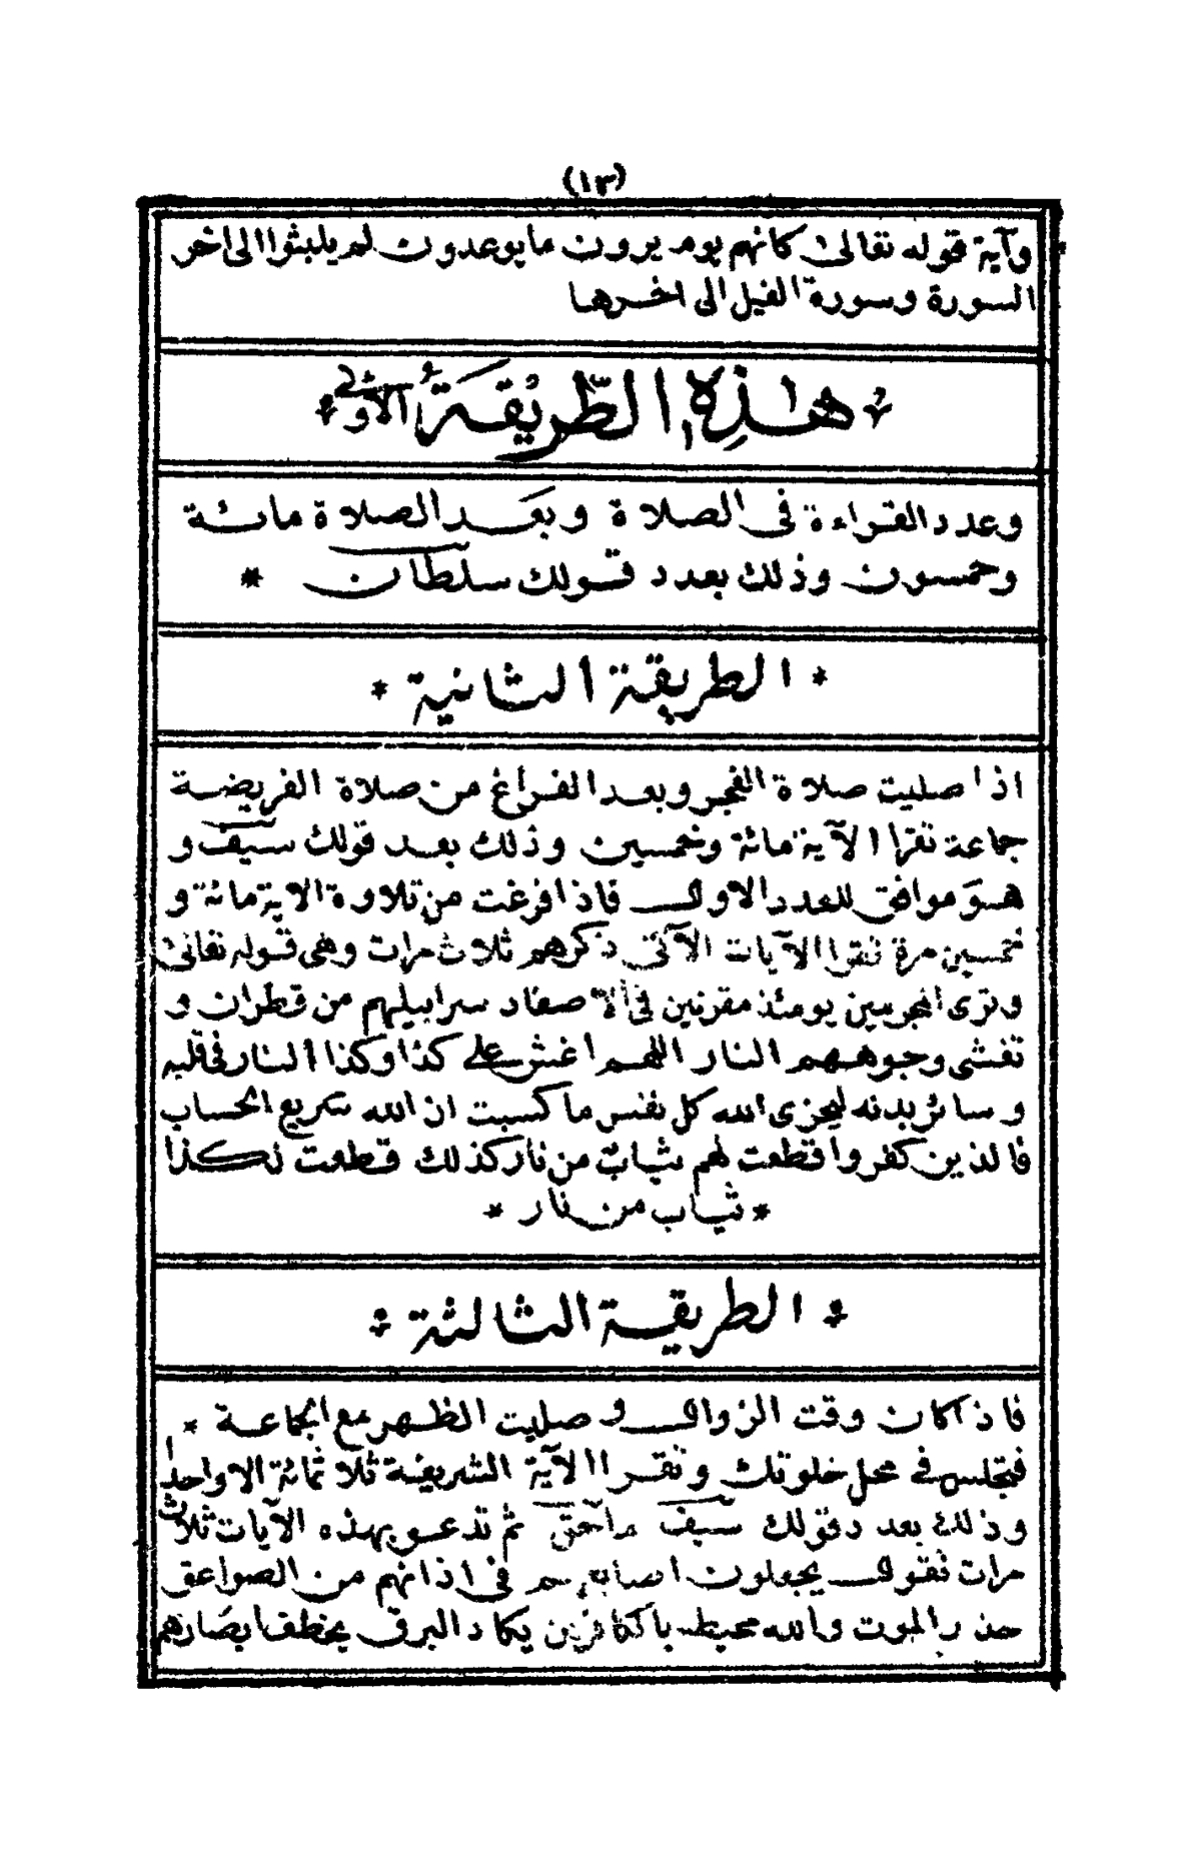 (١٣)
وآية قوله تعالى كانهم يوم يرون ما يوعدون لم يلبثوا الى اخر
السورة وسورة الفيل الى اخرها
هٰذِهِ الطَّرِيقَةُ الأولى
وعدد القراءة فى الصلاة وبعد الصلاة مائة
وخمسون وذلك بعدد قولك سلطان *
* الطريقة الثانية *
اذا صليت صلاة الفجر وبعد الفراغ من صلاة الفريضة
جماعة تقرا الآية مائة وخمسين وذلك بعد قولك سيف و
هو موافق للعدد الاول فاذا فرغت من تلاوة الاية مائة و
خمسين مرة تقرا الآيات الآتى ذكرهم ثلاث مرات وهى قوله تعالى
وترى المجرمين يومئذ مقرنين فى الاصفاد سرابيلهم من قطران و
تغشى وجوههم النار اللهم اغش على كذا وكذا النار فى قلبه
وسائر بدنه ليجزى الله كل نفس ما كسبت ان الله سريع الحساب
فالذين كفروا قطعت لهم ثياب من نار كذلك قطعت لكذا
* ثياب من نار *
الطريقة الثالثة
فاذا كان وقت الزوال وصليت الظهر مع الجماعة *
فتجلس فى محل خلوتك وتقرا الآية الشريفة ثلاثمائة الا واحدا
وذلك بعدد قولك سيف ماحق ثم تدعو بهذه الآيات ثلاث
مرات تقول يجعلون اصابعهم فى اذانهم من الصواعق
حذر الموت والله محيط بالكافرين يكاد البرق يخطف ابصارهم